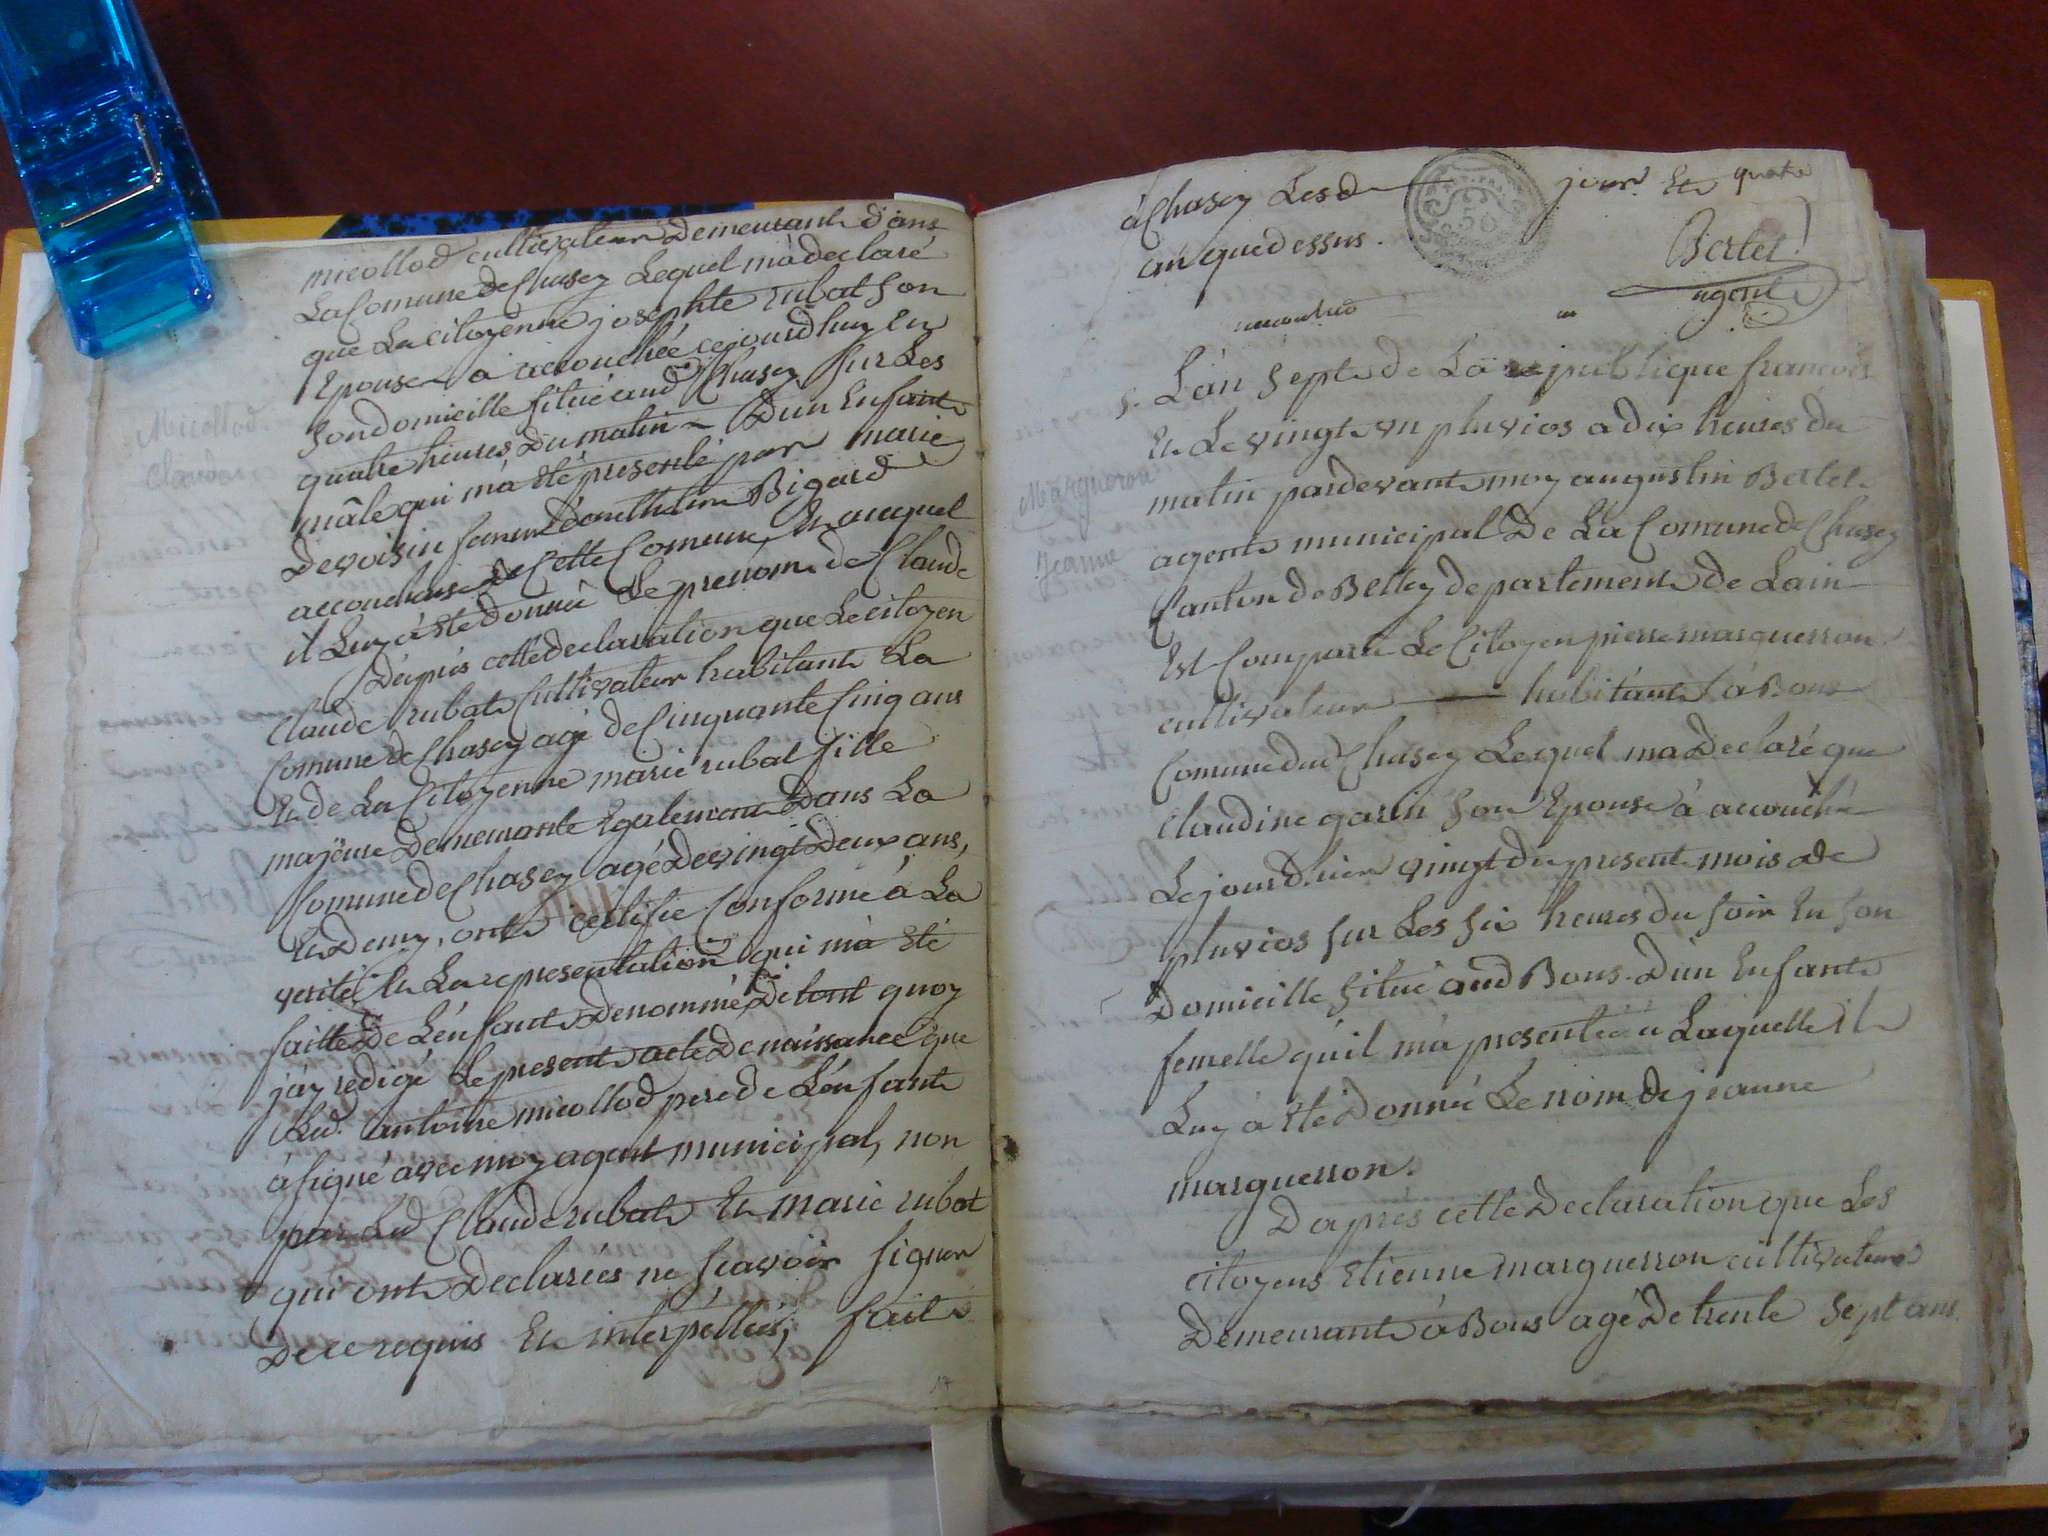 micollod cultivateur Demeurant dans
La Comune de Chasey Lequel m'a declaré
que La citoyenne josephte rubat son
Epouse a accouchée cejourdhuy En
son domicille situé aud Chasey sur Les
quatre heures du matin Dun Enfant
mâle qui m'a été presenté par marie
Devoisin femme d'anthelme Bigard
accoucheuse de Cette Comune, Et auquel
il Luy à été donné Le prenom de Claude
D'aprés cette declaration que Le citoyen
Claude rubat Cultivateur habitant La
Comune de Chasey agé de Cinquante Cinq ans
Et de La Citoyenne marie rubat fille
majeure Demeurante Egalement Dans La
Comune de Chasey agé De vingt Deux ans,
ont certifie Conforme à La
verité Et La representation qui m'a été
faitte De L'enfant Denommé, De tout quoy
j'ay redigé Le present acte De naissance que
Led. antoine micollod pere de L'enfant
à signé avec moy agent municipal, non
par Led Claude rubat Et marie rubat
qui ont Declarées ne scavoir signer
De ce requis Et interpellés, fait
17
à Chasey Les d jour Et quatre
an que dessus.
Bertet
agent
micollod
5. L'an sept de La republique francois
Et Le vingt un pluvios a dix heures du
matin pardevant moy augustin Bertet
Margueron
Jeanne
agent municipal De La Comune de Chasey
Canton de Belley departement de Lain
Est Comparu Le Citoyen pierre marguerron
cultivateur habitant à Bons
Comune dud Chasey Lequel m'a Declaré que
Claudine garin son Epouse à accouché
Le jourd'hier vingt du present mois de
pluvios sur Les six heures du soir En son
Domicille situé aud Bons. D'un Enfant
femelle qu'il m'a presenté à Laquelle il
Luy a été Donné Le nom de jeanne
marguerron.
D'aprés cette Declaration que Les
citoyens Etienne marguerron cultivateur
Demeurant à Bons agé De trente sept ans